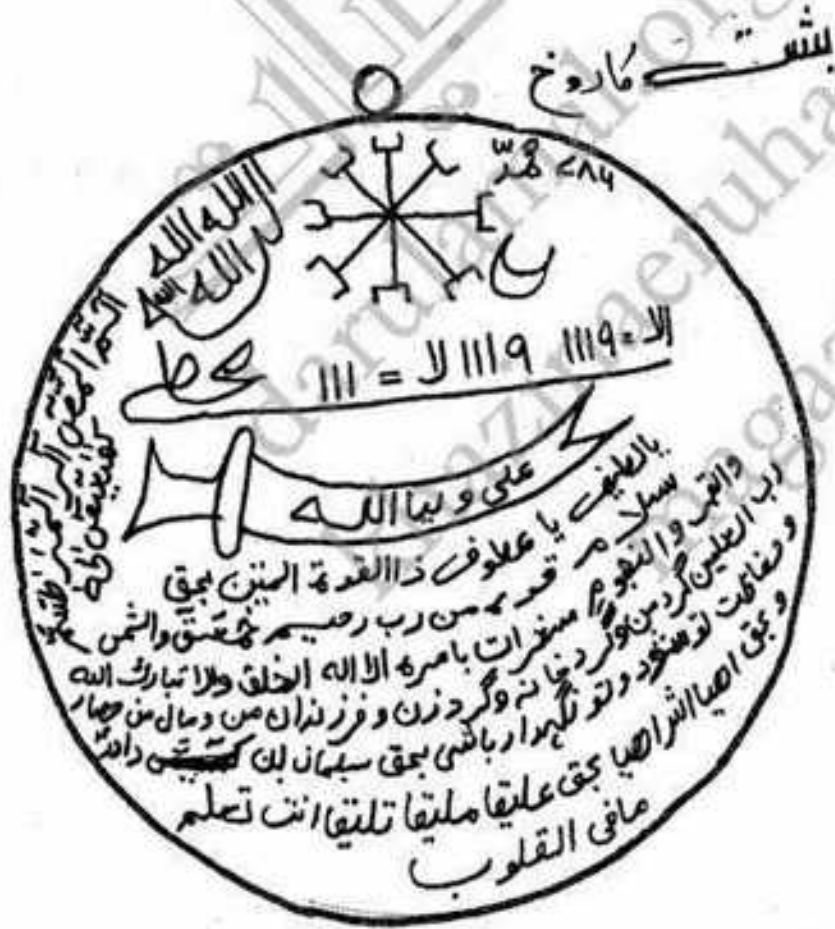 پشت کا رخ
۷۸۶
الله الله
الله الله
الٓمٓ الٓمٓصٓ الٓرٰ الٓمٓرٰ
كهيعص طه
ااا = لا ااا۹ ااا۹ = لا
علی ولیا الله
یالطیف یا عطوف ذا القوة المتین بحق
سلام قولا من رب رحیم حمعسق والشمس
والقمر والنجوم مسخرات بامره الا له الخلق والا تبارك الله
رب العلمین گرد من وگرد خانه وگرد زن و فرزندان من ومال من حصار
وحفاظت تو شود وتو نگهدار باشی بحق سلیمان بن داود
وبحق اهیا اشراهیا بحق علیقا ملیقا تلیقا انت تعلم
مافی القلوب
darulamal.org